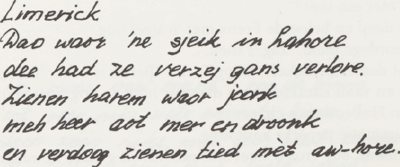 Limerick
Dao waor 'ne sjeik in Lahore
dee had ze verzej gans verlore.
Zienen harem waor jonk
meh heer aot mer en droonk
en verdoog zienen tied mèt aw-hore.